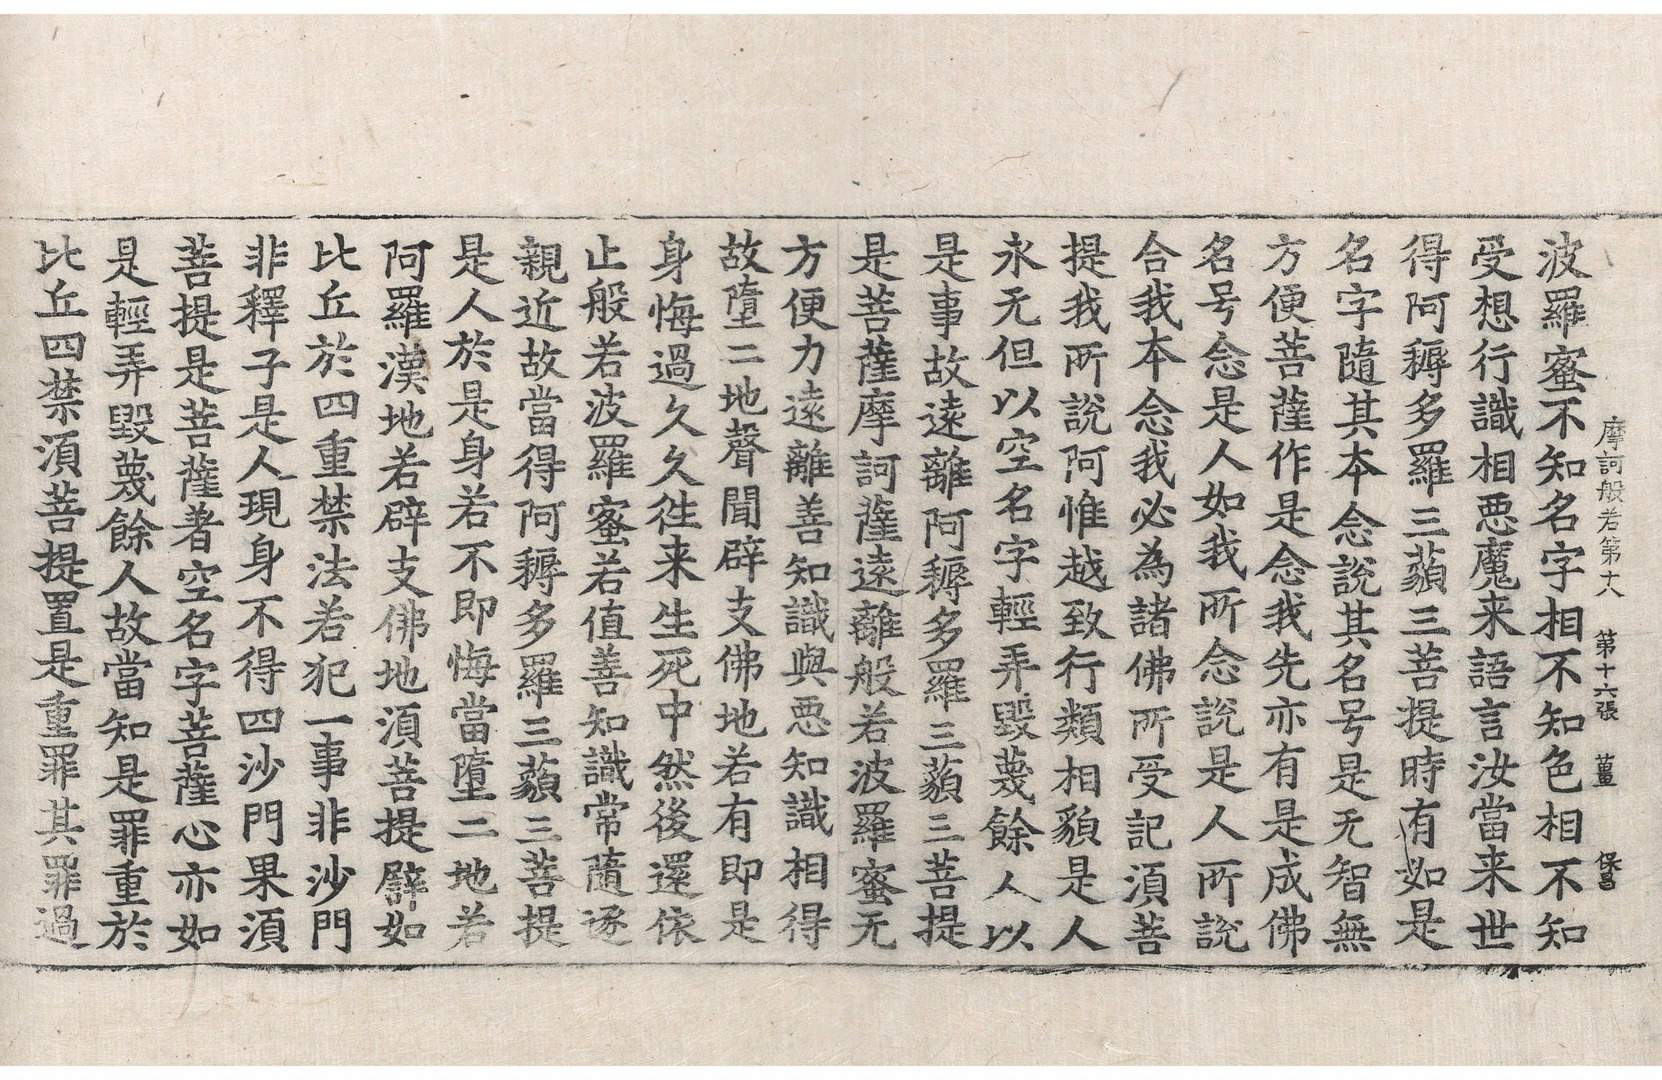 摩訶般若第十八 第十六張 薑 保昌
波羅蜜不知名字相不知色相不知
受想行識相悪魔来語言汝當来世
得阿耨多羅三藐三菩提時有如是
名字隨其本念說其名号是无智無
方便菩薩作是念我先亦有是成佛
名号念是人如我所念說是人所說
合我本念我必為諸佛所受記湏菩
提我所說阿惟越致行類相貌是人
永无但以空名字輕弄毀蔑餘人以
是事故遠離阿耨多羅三藐三菩提
是菩薩摩訶薩遠離般若波羅蜜无
方便力遠離善知識與悪知識相得
故墮二地聲聞辟支佛地若有即是
身悔過久久往来生死中然後還依
止般若波羅蜜若值善知識常隨逐
親近故當得阿耨多羅三藐三菩提
是人於是身若不即悔當墮二地若
阿羅漢地若辟支佛地湏菩提譬如
比丘於四重禁法若犯一事非沙門
非釋子是人現身不得四沙門果湏
菩提是菩薩著空名字菩薩心亦如
是輕弄毀蔑餘人故當知是罪重於
比丘四禁湏菩提置是重罪其罪過